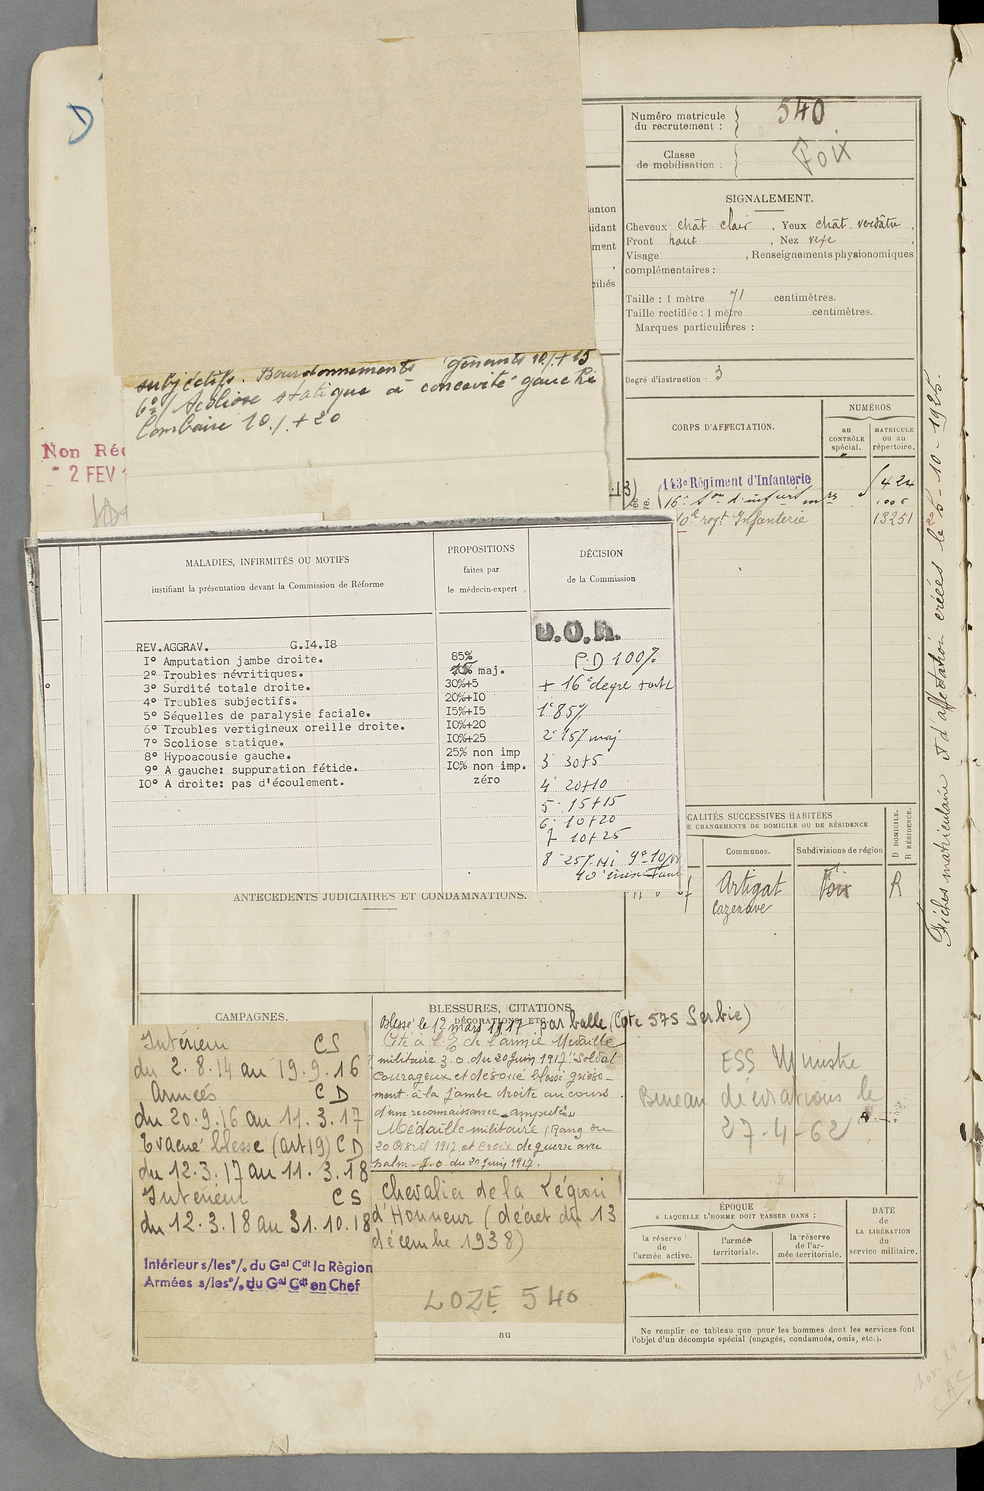 D
Numéro matricule
du recrutement :
540
Classe
de mobilisation :
Foix
SIGNALEMENT.
Cheveux chât clair , Yeux chât. verdâtre ,
Front haut , Nez vexe ,
Visage , Renseignements physionomiques
complémentaires :
Taille : 1 mètre 71 centimètres.
Taille rectifiée : 1 mètre centimètres.
Marques particulières :
Degré d'instruction . 3
anton
idant
ment
ciliés
subjectifs. Bourdonnements gênants 10./.+15
6°/ Scoliose statique à concavité gauche
lombaire 10./.+20
Non Réc
- 2 FEV 1
CORPS D'AFFECTATION.
NUMÉROS
au
CONTRÔLE
spécial.
MATRICULE
ou au
répertoire.
143e Régiment d'Infanterie
16e Son d'infirmrs
regt Infanterie 13251
Fiches matriculaire et d'affectation créées le 5-10-1925.
MALADIES, INFIRMITÉS OU MOTIFS
justifiant la présentation devant la Commission de Réforme
PROPOSITIONS
faites par
le médecin-expert
DÉCISION
de la Commission
D.O.R.
REV.AGGRAV. G.I4.I8
I° Amputation jambe droite. 85%
2° Troubles névritiques. maj.
3° Surdité totale droite. 30%+5
4° Troubles subjectifs. 20%+IO
5° Séquelles de paralysie faciale. I5%+I5
6° Troubles vertigineux oreille droite. IO%+20
7° Scoliose statique. IO%+25
8° Hypoacousie gauche. 25% non imp
9° A gauche: suppuration fétide. IO% non imp.
IO° A droite: pas d'écoulement. zéro
P.D 100%
+ 16e degré +
1° 85%
2° 15% maj
3° 30+5
4° 20+10
5° 15+15
6° 10+20
7 10+25
8° 25% NI 9° 10%
LOCALITÉS SUCCESSIVES HABITÉES
CHANGEMENTS DE DOMICILE OU DE RÉSIDENCE
Communes.
Subdivisions de région
D DOMICILE.
R RÉSIDENCE.
Artigat Foix R
Cazenave
ANTÉCÉDENTS JUDICIAIRES ET CONDAMNATIONS.
CAMPAGNES.
Intérieur CS
du 2.8.14 au 19.9.16
Armées CD
du 20.9.16 au 11.3.17
Evacué blessé (art 19) CD
du 12.3.17 au 11.3.18
Intérieur CS
du 12.3.18 au 31.10.18
Intérieur s/les o/. du Gal Cdt la Région
Armées s/les o/. du Gal Cdt en Chef
BLESSURES, CITATIONS,
DÉCORATIONS, ETC.
Blessé le 12 mars 1917 par balle (Cote 575 Serbie)
Cité à l'O de l'armée Médaille
militaire J.O. du 20 juin 1917 "Soldat
courageux et dévoué blessé griève-
ment à la jambe droite au cours
d'une reconnaissance - amputé"
Médaille militaire (Rang du
20 Avril 1917 et Croix de guerre avec
palm - J.O du 20 juin 1917.
Chevalier de la Légion
d'Honneur (décret du 13
décembre 1938)
LOZE 540
au
ESS Ministre
Bureau décorations le
27-4-62
ÉPOQUE
A LAQUELLE L'HOMME DOIT PASSER DANS :
la réserve
de
l'armée active.
l'armée
territoriale.
la réserve
de l'ar-
mée territoriale.
DATE
de
LA LIBÉRATION
du
service militaire.
Ne remplir ce tableau que pour les hommes dont les services font
l'objet d'un décompte spécial (engagés, condamnés, omis, etc.).